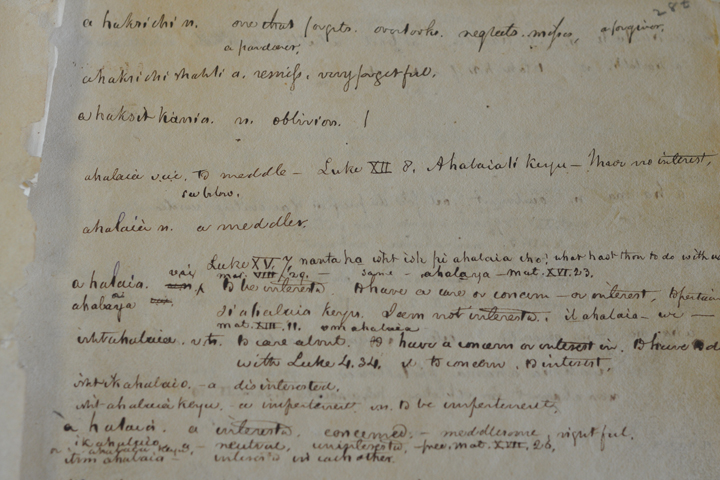 280
ahaksichi n. one that forgets. overlooks. neglects. misses, a forgiver,
a pardoner,
ahaksichi shali a. remiss. very forgetful.
ahaksit kania. n. oblivion. /
ahalaia v.i. To meddle - Luke XII 8. Ahalaiali keyu - I have no interest,
ahalaia n. a meddler.
Luke XV nanta ha isht ish pi ahalaia cho; what hast thou to do with us
mat. VIII / 29. - same - ahalaya - mat. XVI. 23.
ahalaia. v.i. To be interested, To have a care or concern - or interest, To pertain
ahalaya
si ahalaia keyu. I am not interested. il ahalaia - we -
mat. XIII. 11. im ahalaia
isht ahalaia. v.t. To care about. To have a concern or interest in. To have to do
with Luke 4. 34, To concern. To interest,
isht ik ahalaio. - a - disinterested.
isht ahalaia keyu. - a impertinent v.n. To be impertinent,
ahalaia. a interested, concerned. - meddlesome, rightful.
ik ahalaio, a - neutral, uninterested, - free. mat. XVII. 26,
or ahalaia keyu,
itim ahalaia - interested in each other.